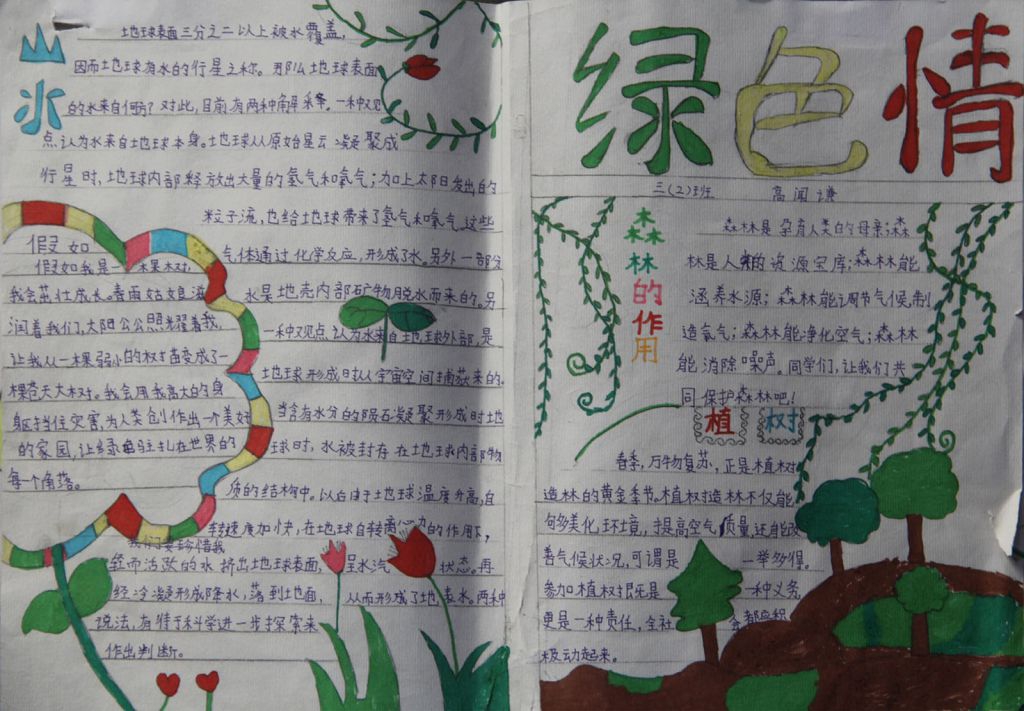 山水
地球表面三分之二以上被水覆盖,
因而地球有水的行星之称。那么地球表面
的水来自何方?对此,目前有两种解释。一种观
点认为水来自地球本身。地球从原始星云凝聚成
行星时,地球内部释放出大量的氢气和氧气;加上太阳发出的
粒子流,也给地球带来了氢气和氧气这些
气体通过化学反应,形成了水。另外一部分
水是地壳内部矿物脱水而来的。另
一种观点认为水来自地球外部,是
地球形成时从宇宙空间捕获来的。
当含有水分的陨石凝聚形成时地
球时,水被封存在地球内部物
质的结构中。以后由于地球温度升高,自
转速度加快,在地球自转离心力的作用下,
轻而活跃的水挤出地球表面,呈水汽状态。再
经冷凝形成降水,落到地面,从而形成了地表水。两种
说法,有待于科学进一步探索来
作出判断。
假如
假如我是一棵果树
我会茁壮成长。春雨姑娘滋
润着我们,太阳公公照耀着我,
让我从一棵弱小的树苗变成了一
棵苍天大树。我会用我高大的身
躯挡住灾害,为人类创作出一个美好
的家园,让绿色驻扎在世界的
每一个角落。
我们要珍惜我
绿色情
三(2)班 高闻谦
森林的作用
森林是孕育人类的母亲;森
林是人类的资源宝库;森林能
涵养水源;森林能调节气候,制
造氧气;森林能净化空气;森林
能消除噪声。同学们,让我们共
同保护森林吧!
植树
春季,万物复苏,正是植树
造林的黄金季节。植树造林不仅能
够美化环境,提高空气质量,还能改
善气候状况,可谓是一举多得。
参加植树既是一种义务
更是一种责任,全社会都应积
极动起来。